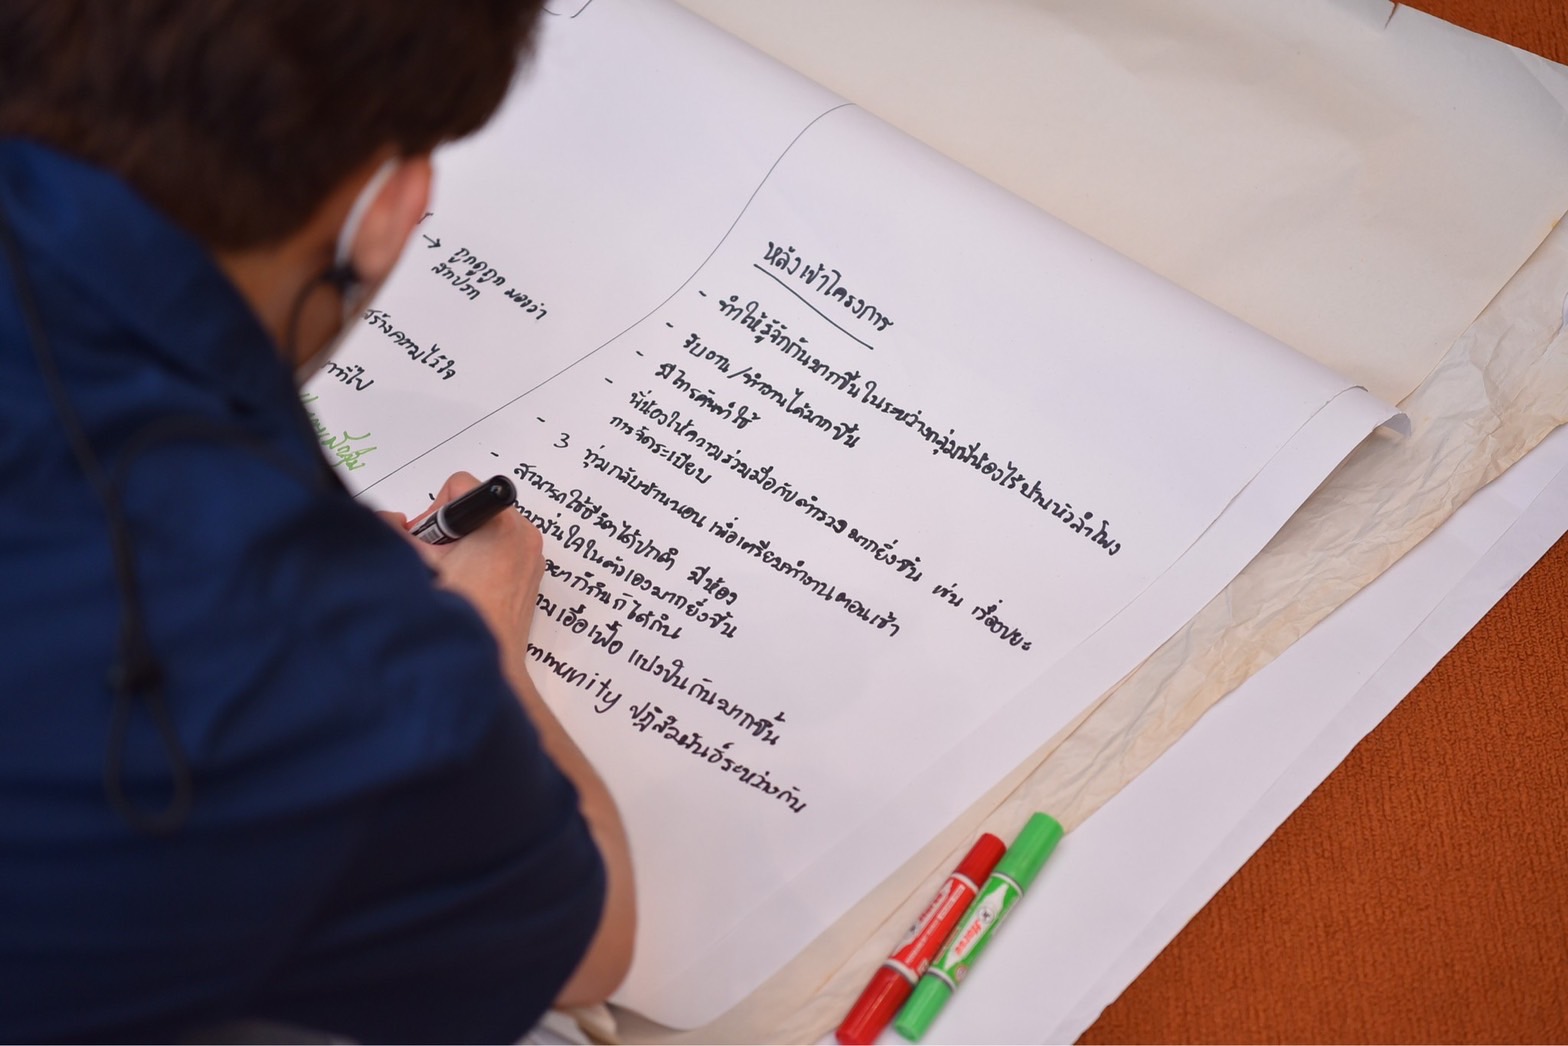 → ถูกดูถูก มองว่า
สกปรก
สร้างความไว้ใจ
หลังเข้าโครงการ
- ทำให้รู้จักกันมากขึ้น ในระหว่างกลุ่มพี่น้องไร้บ้านหัวลำโพง
- รับงาน/ทำงานได้มากขึ้น
- มีโทรศัพท์ใช้
- พี่น้องให้ความร่วมมือกับตำรวจมากยิ่งขึ้น เช่น เรื่องขยะ
การจัดระเบียบ
- 3 ทุ่มกลับเข้านอน เพื่อเตรียมทำงานตอนเช้า
- สามารถใช้ชีวิตได้ปกติ มีห้อง
ในตัวเองมากยิ่งขึ้น
เอื้อเฟื้อ แบ่งปันกันมากขึ้น
mmunity ปฏิสัมพันธ์ระหว่างกัน
Horse
Horse